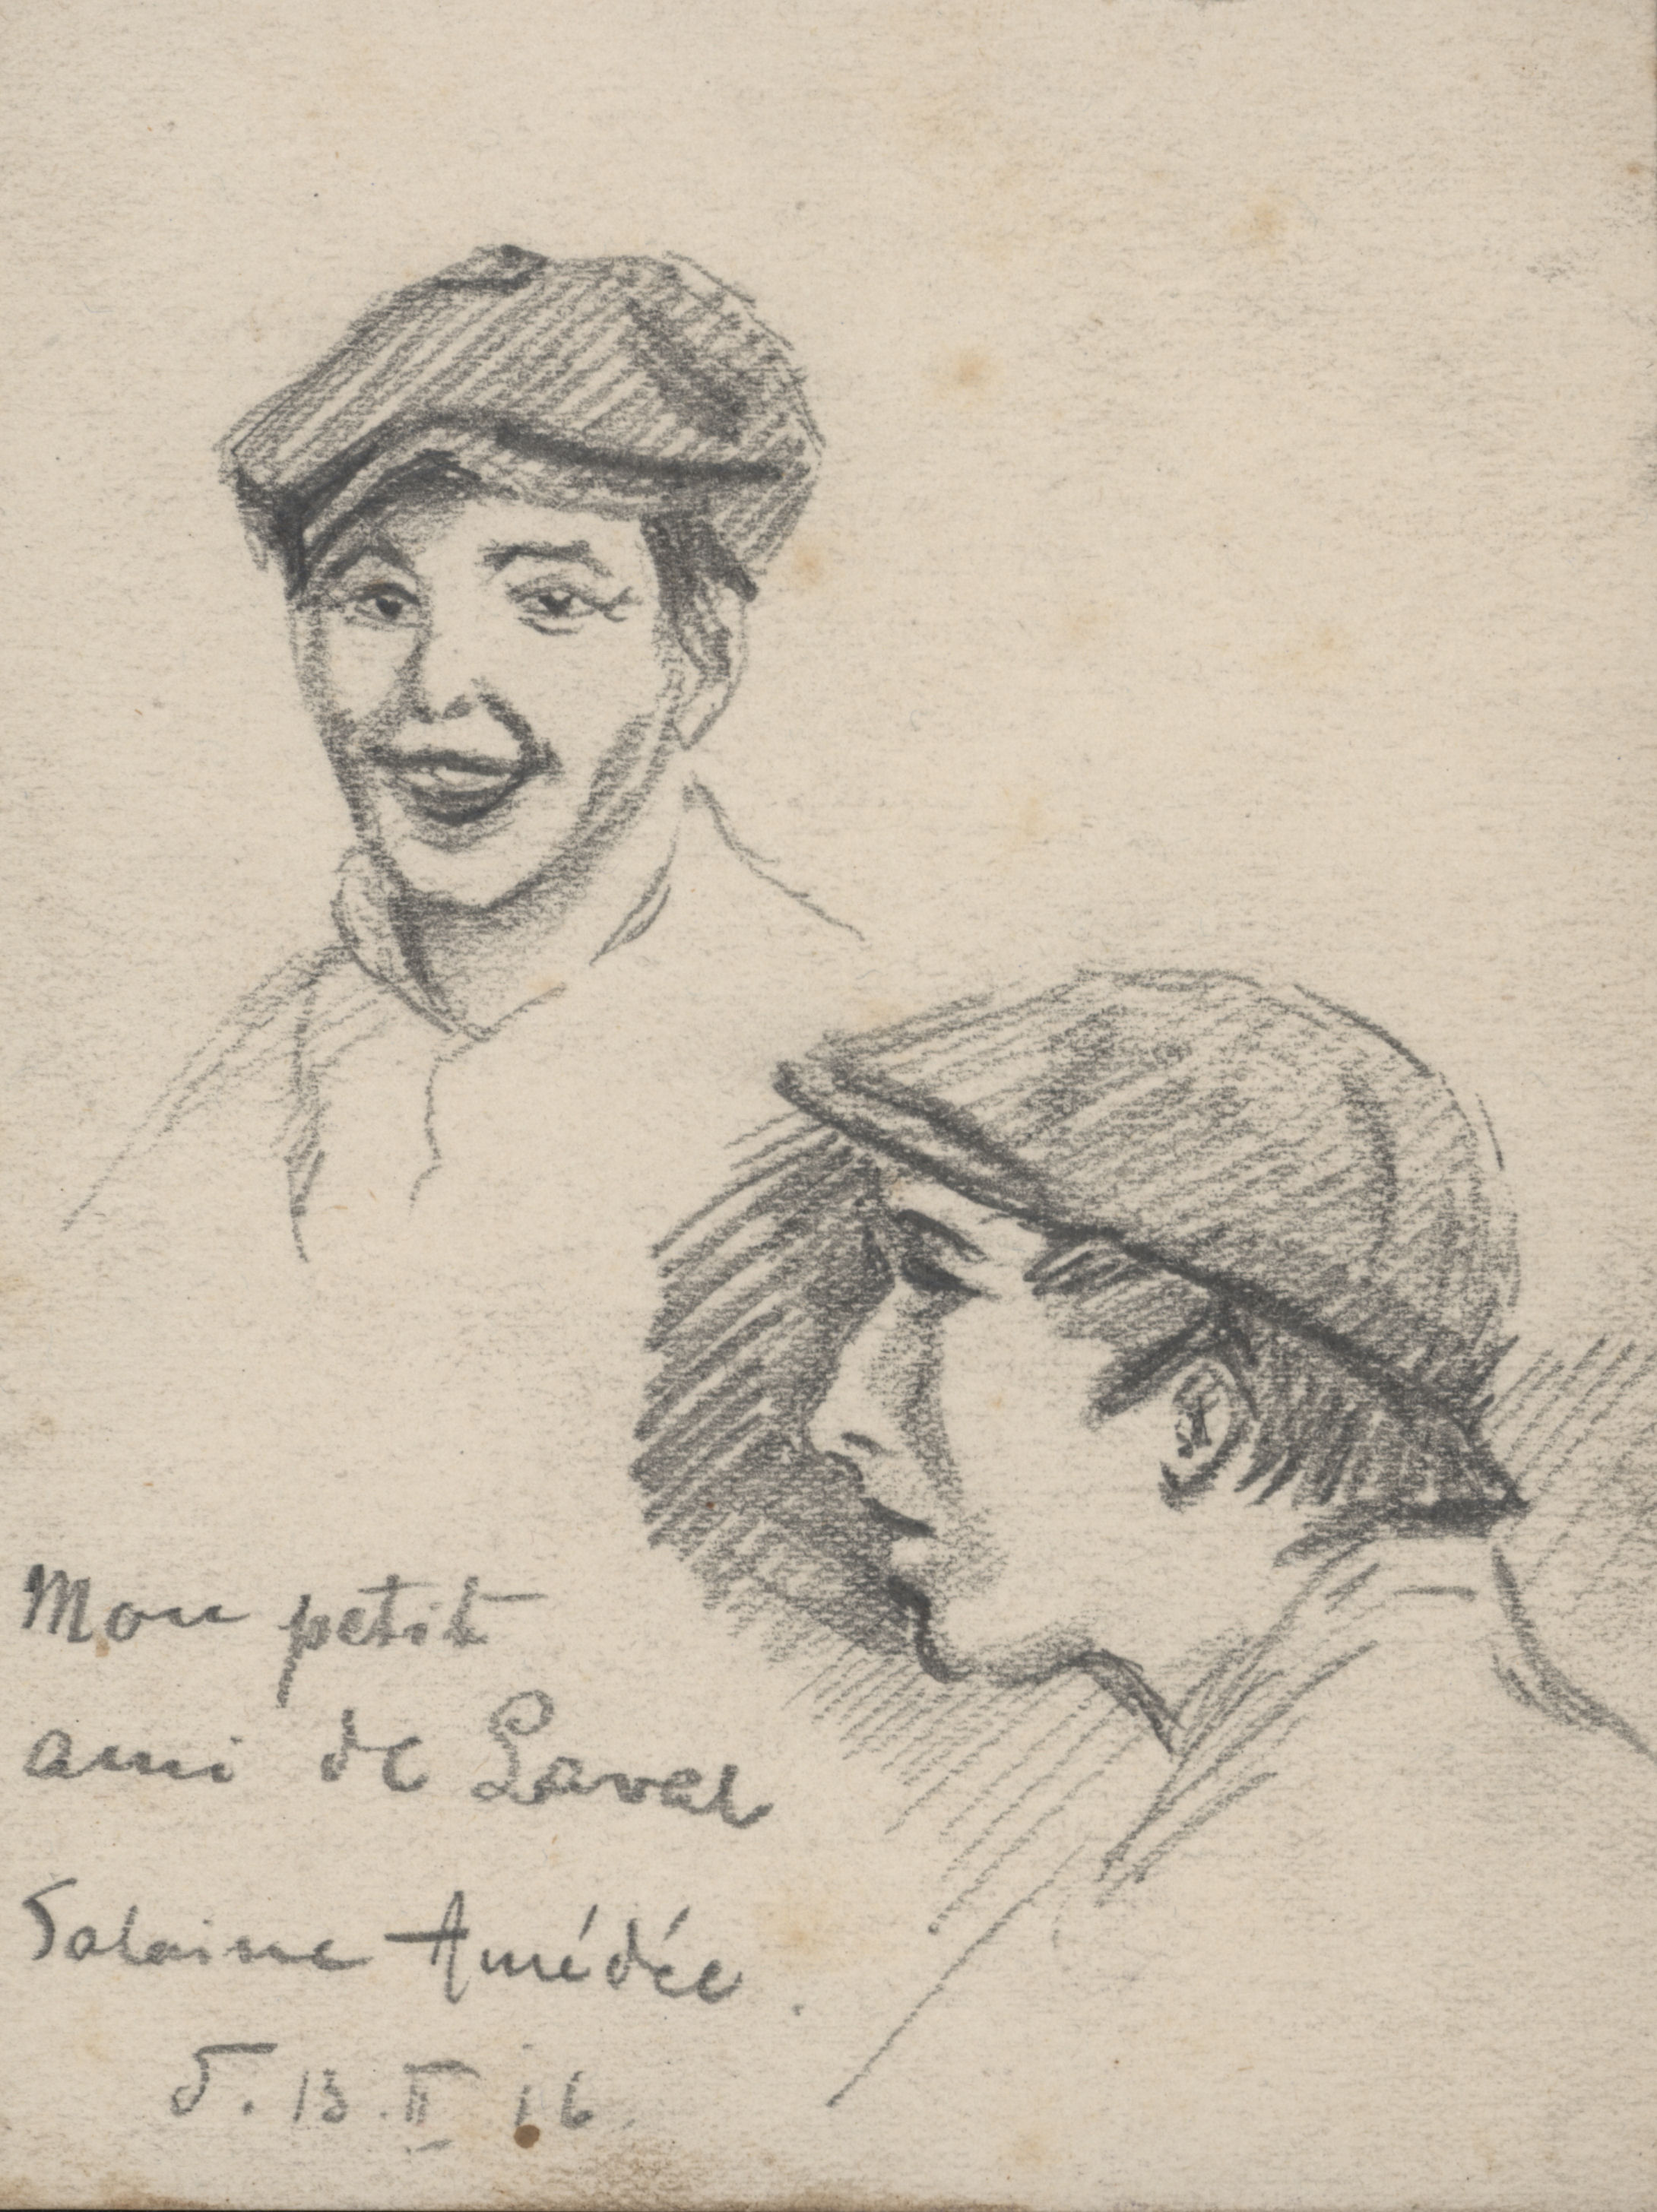 Mon petit
ami de Laval
Salaine Amédée.
13. II 16.